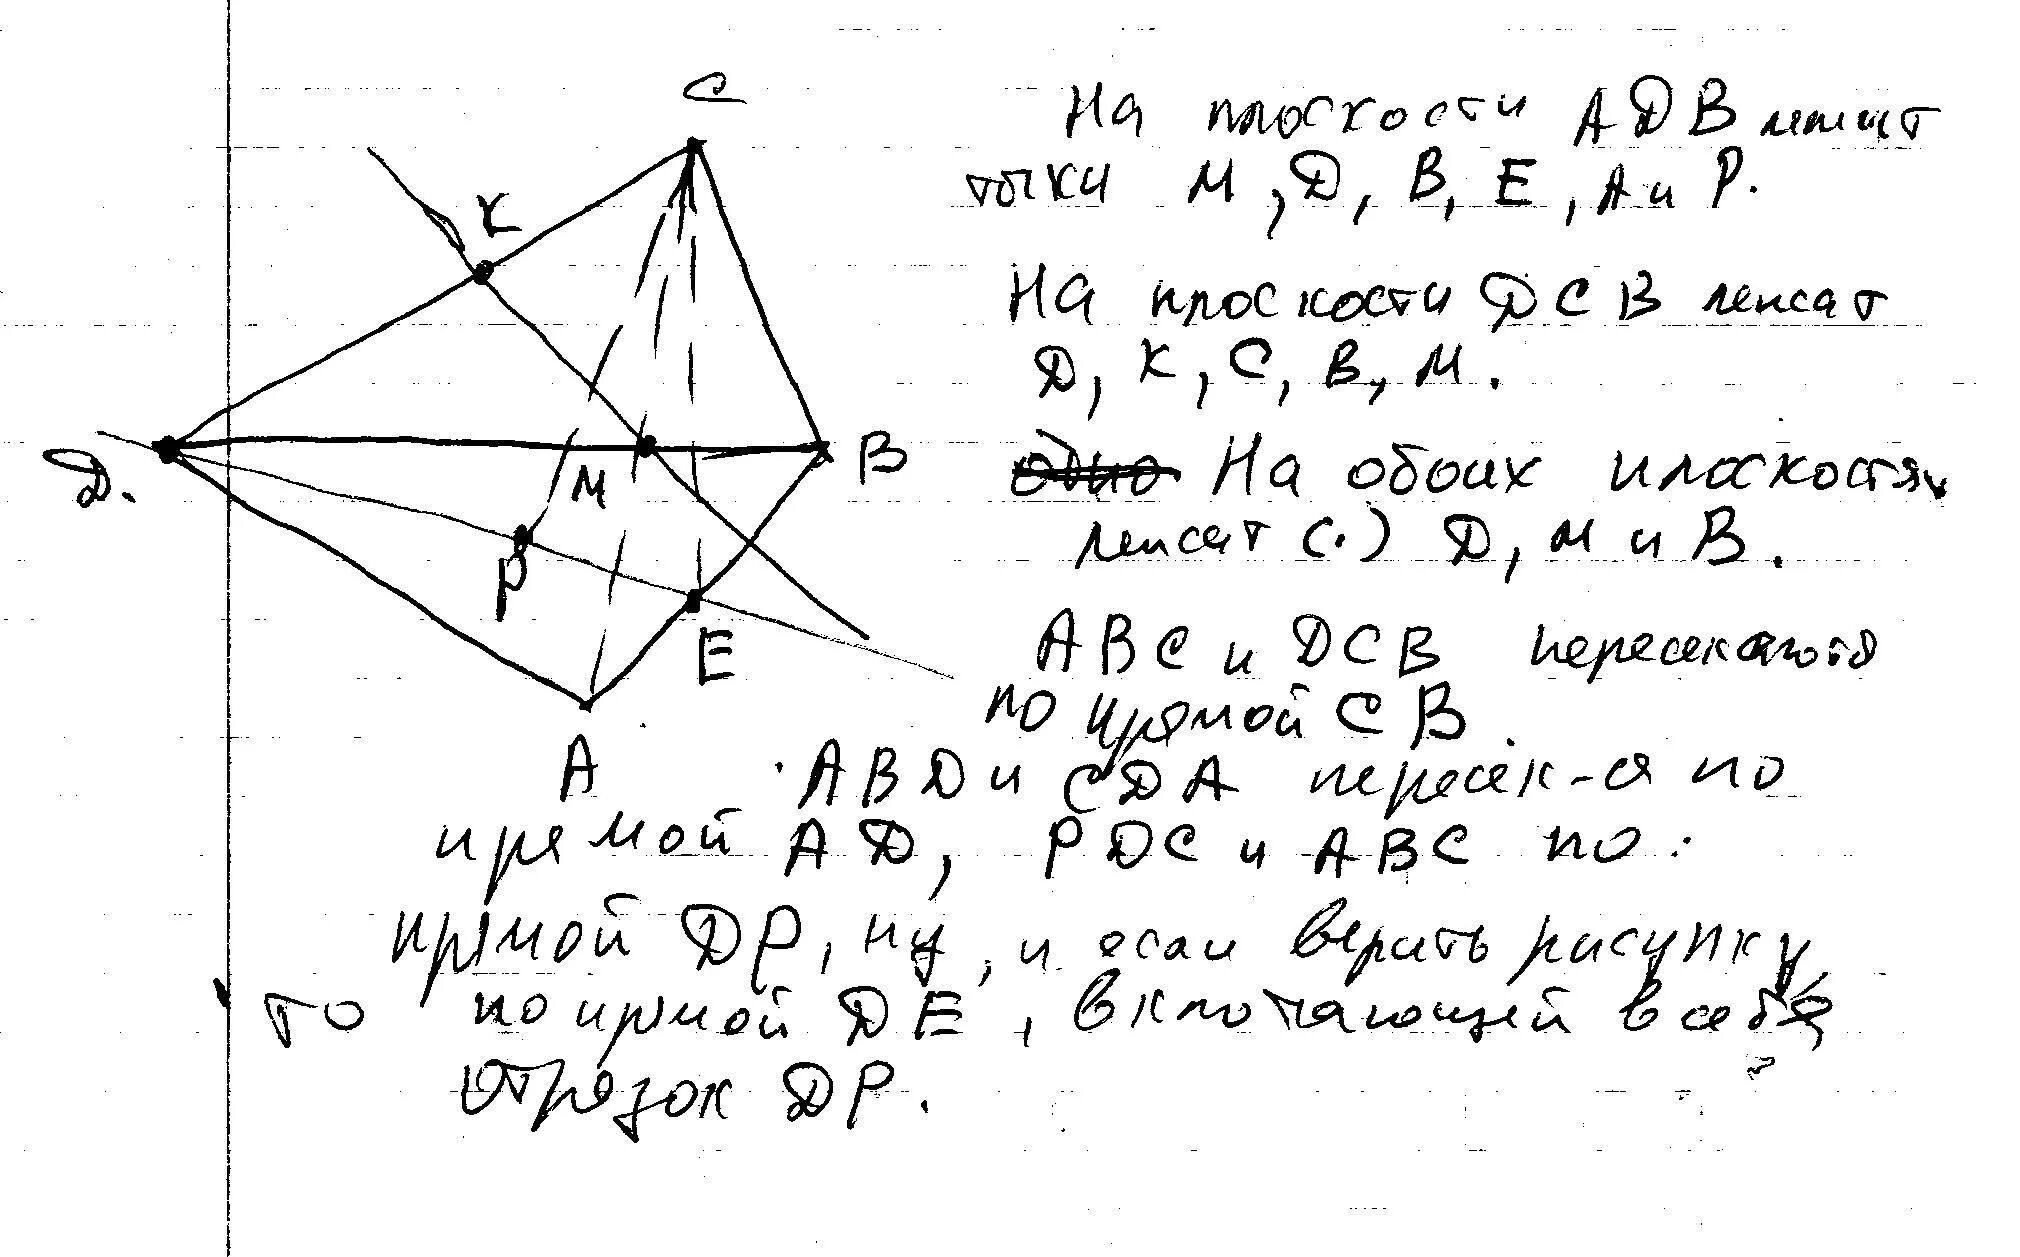 С
К
Д.
М
В
Р
Е
А
На плоскости АДВ лежат
точки М, Д, В, Е, А и Р.
На плоскости ДСВ лежат
Д, К, С, В, М.
На обоих плоскостях
лежат (.) Д, М и В.
АВС и ДСВ пересекаются
по прямой СВ.
АВD и СДА пересек-ся по
прямой АД, РДС и АВС по
прямой ДР, ну, и если верить рисунку,
то по прямой ДЕ, включающей в себя
отрезок ДР.